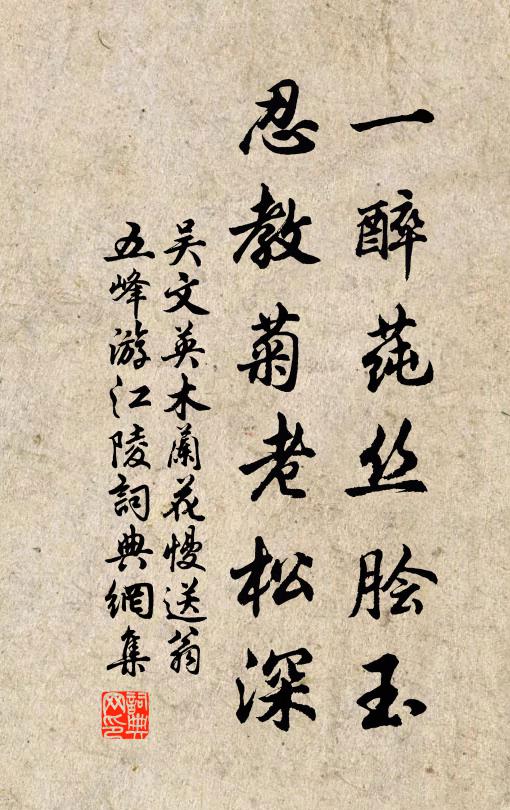 一醉莼丝脍玉
忍教菊老松深
吴文英木蘭花慢送翁
五峰游江陵詞典網集
詞典網印